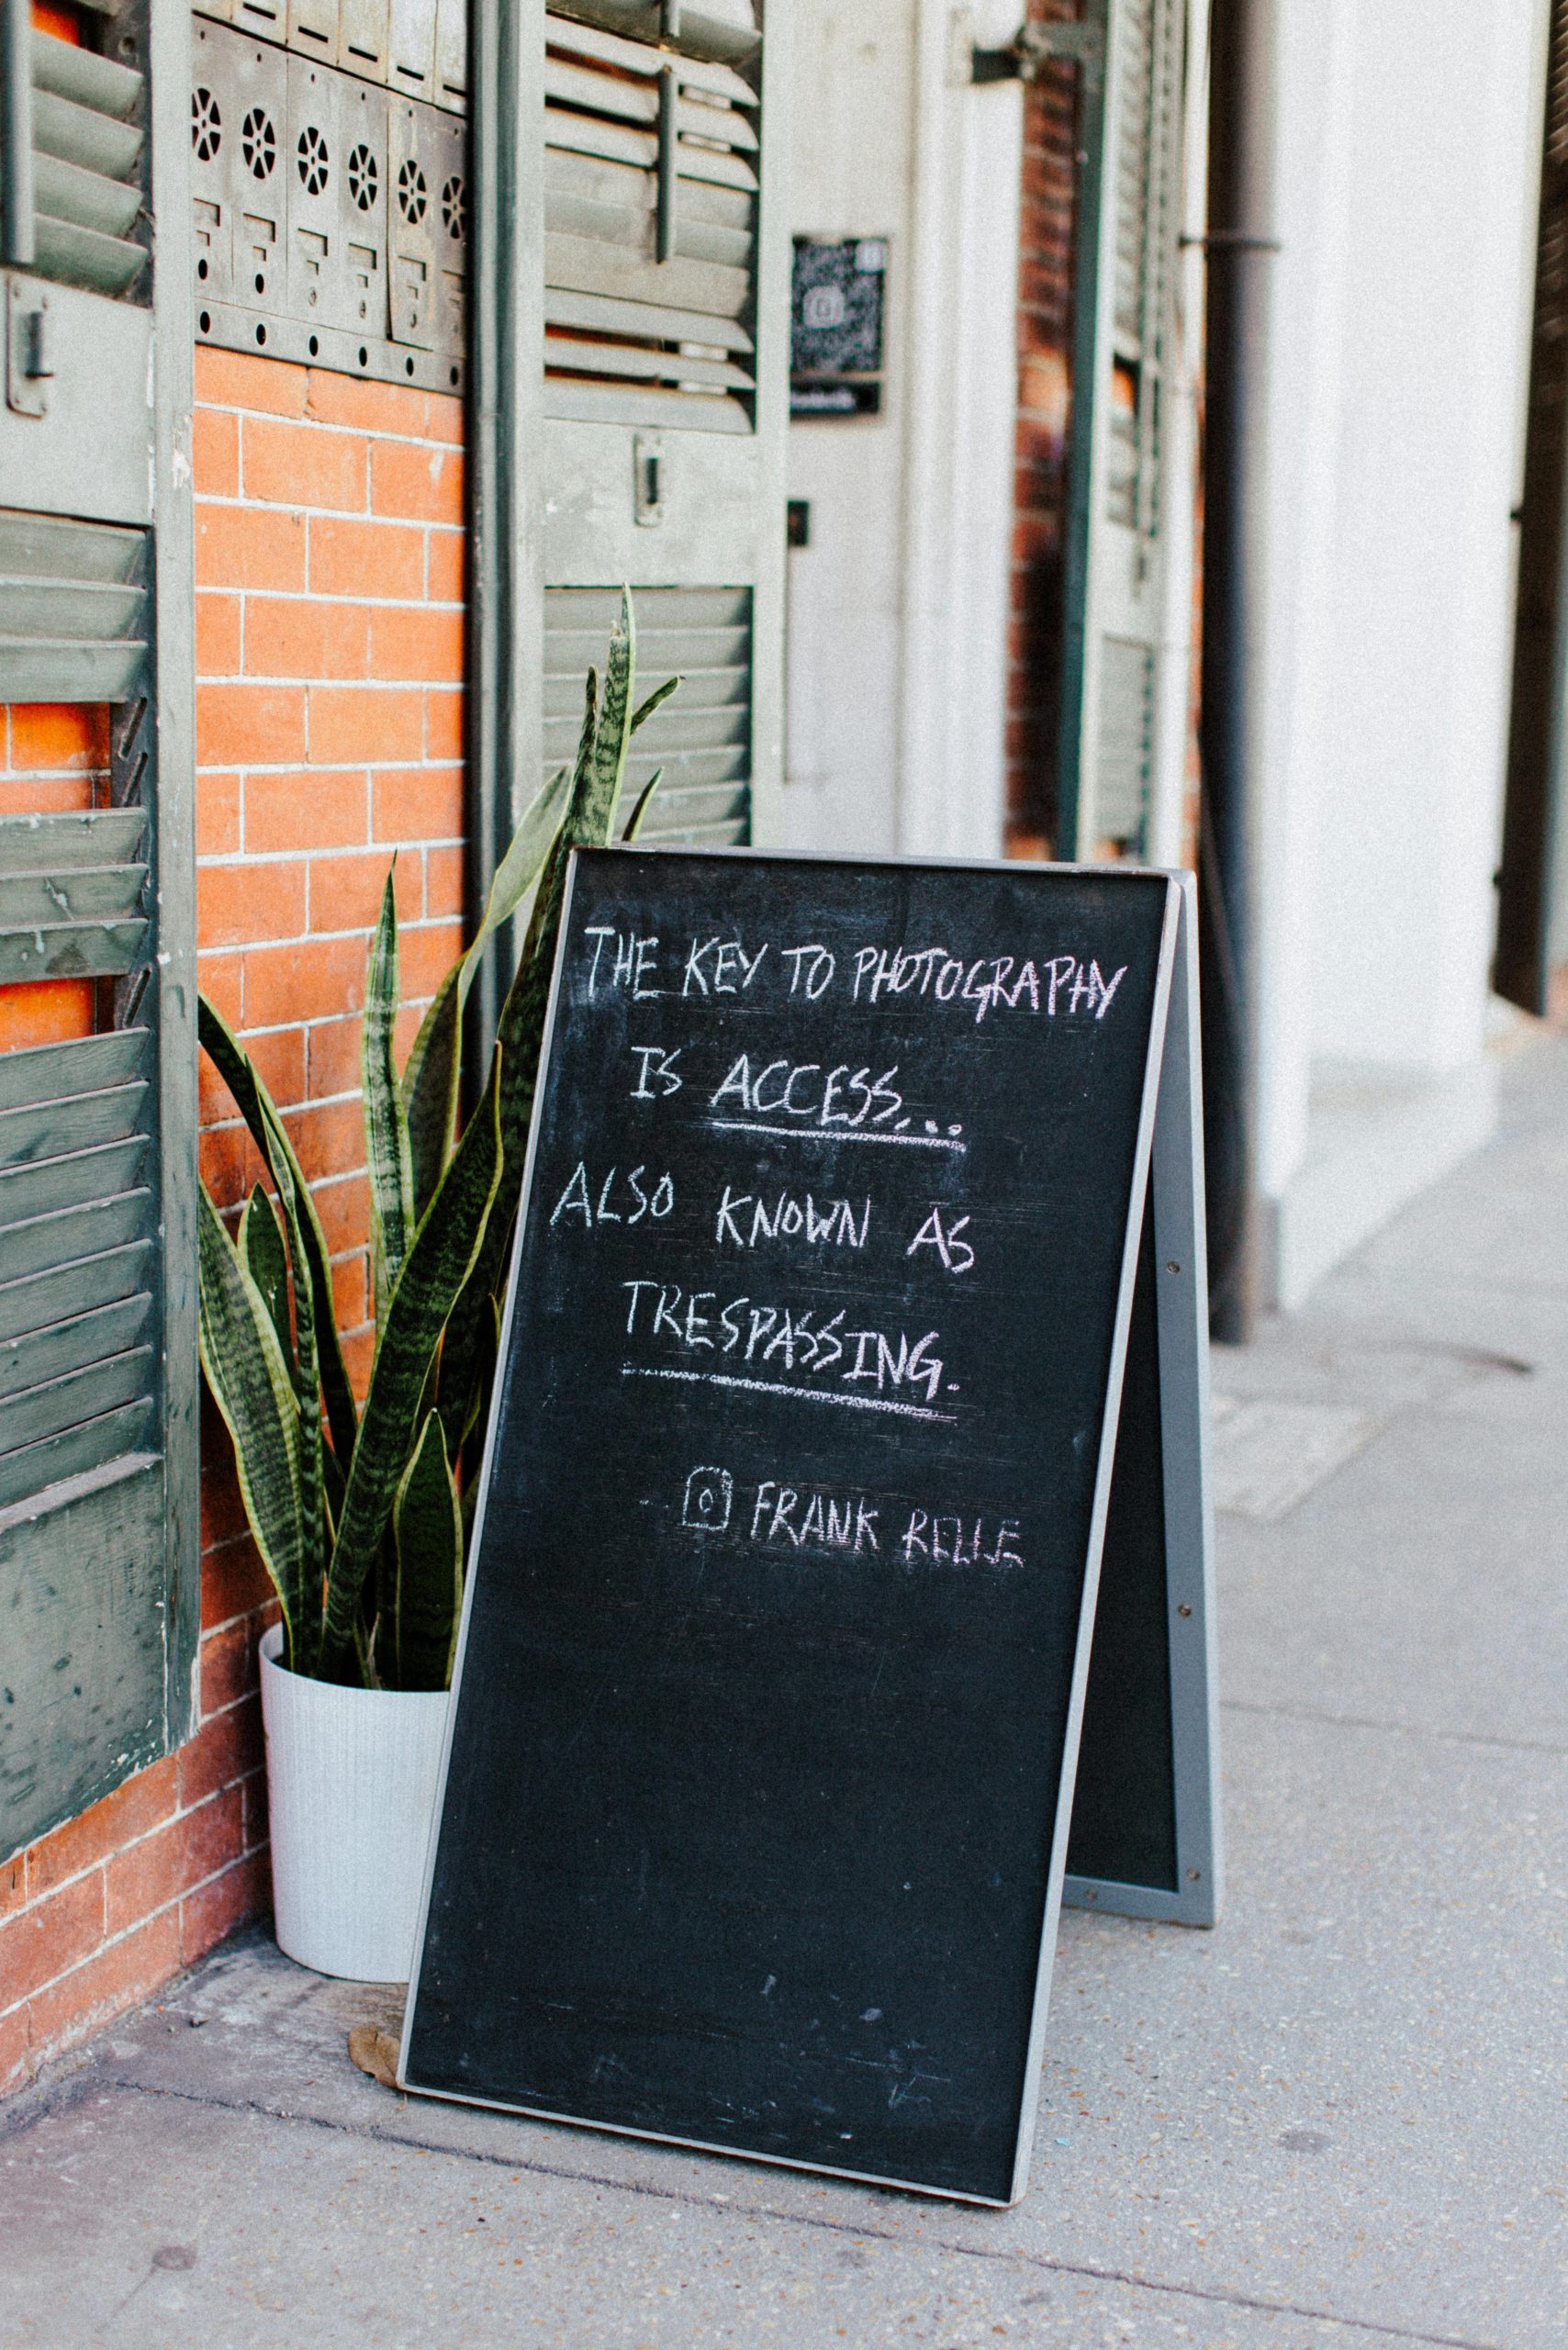 THE KEY TO PHOTOGRAPHY
IS ACCESS...
ALSO KNOWN AS
TRESPASSING.
FRANK RELLE